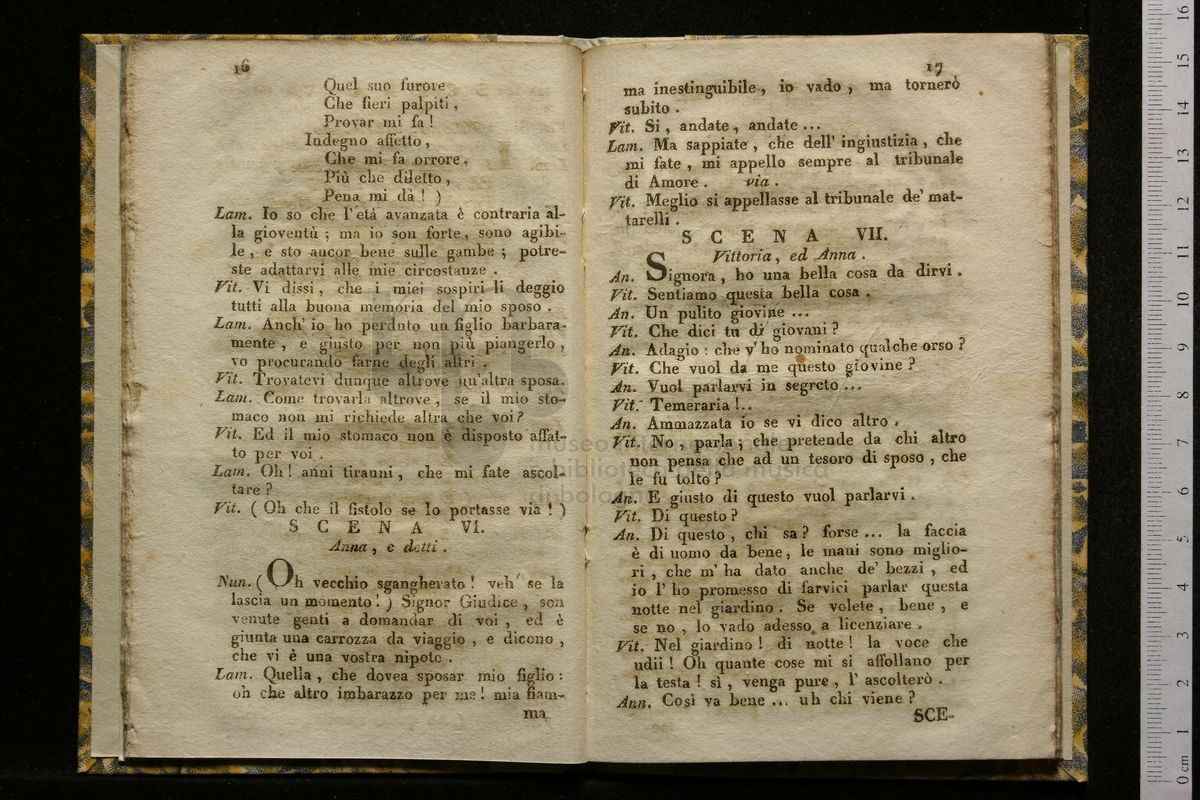 16
Quel suo furore
Che fieri palpiti,
Provar mi fa!
Indegno affetto,
Che mi fa orrore,
Più che diletto,
Pena mi dà! )
Lam. Io so che l'età avanzata è contraria al-
la gioventù; ma io son forte, sono agibi-
le, e sto ancor bene sulle gambe; potre-
ste adattarvi alle mie circostanze.
Vit. Vi dissi, che i miei sospiri li deggio
tutti alla buona memoria del mio sposo.
Lam. Anch' io ho perduto un figlio barbara-
mente, e giusto per non più piangerlo,
vo procurando farne degli altri.
Vit. Trovatevi dunque altrove un'altra sposa.
Lam. Come trovarla altrove, se il mio sto-
maco non mi richiede altra che voi?
Vit. Ed il mio stomaco non è disposto affat-
to per voi.
Lam. Oh! anni tiranni, che mi fate ascol-
tare?
Vit. ( Oh che il fistolo se lo portasse via! )
SCENA VI.
Anna, e detti.
Nun. ( Oh vecchio sgangherato! veh' se la
lascia un momento! ) Signor Giudice, son
venute genti a domandar di voi, ed è
giunta una carrozza da viaggio, e dicono,
che vi è una vostra nipote.
Lam. Quella, che dovea sposar mio figlio:
oh che altro imbarazzo per me! mia fiam-
ma
17
ma inestinguibile, io vado, ma tornerò
subito.
Vit. Si, andate, andate ...
Lam. Ma sappiate, che dell' ingiustizia, che
mi fate, mi appello sempre al tribunale
di Amore. via.
Vit. Meglio si appellasse al tribunale de' mat-
tarelli.
SCENA VII.
Vittoria, ed Anna.
An. Signora, ho una bella cosa da dirvi.
Vit. Sentiamo questa bella cosa.
An. Un pulito giovine ...
Vit. Che dici tu di giovani?
An. Adagio: che v' ho nominato qualche orso?
Vit. Che vuol da me questo giovine?
An. Vuol parlarvi in segreto ...
Vit. Temeraria!..
An. Ammazzata io se vi dico altro.
Vit. No, parla; che pretende da chi altro
non pensa che ad un tesoro di sposo, che
le fu tolto?
An. E giusto di questo vuol parlarvi.
Vit. Di questo?
An. Di questo, chi sa? forse ... la faccia
è di uomo da bene, le mani sono miglio-
ri, che m' ha dato anche de' bezzi, ed
io l' ho promesso di farvici parlar questa
notte nel giardino. Se volete, bene, e
se no, lo vado adesso a licenziare.
Vit. Nel giardino! di notte! la voce che
udii! Oh quante cose mi si affollano per
la testa! sì, venga pure, l' ascolterò.
Ann. Così va bene ... uh chi viene?
SCE-